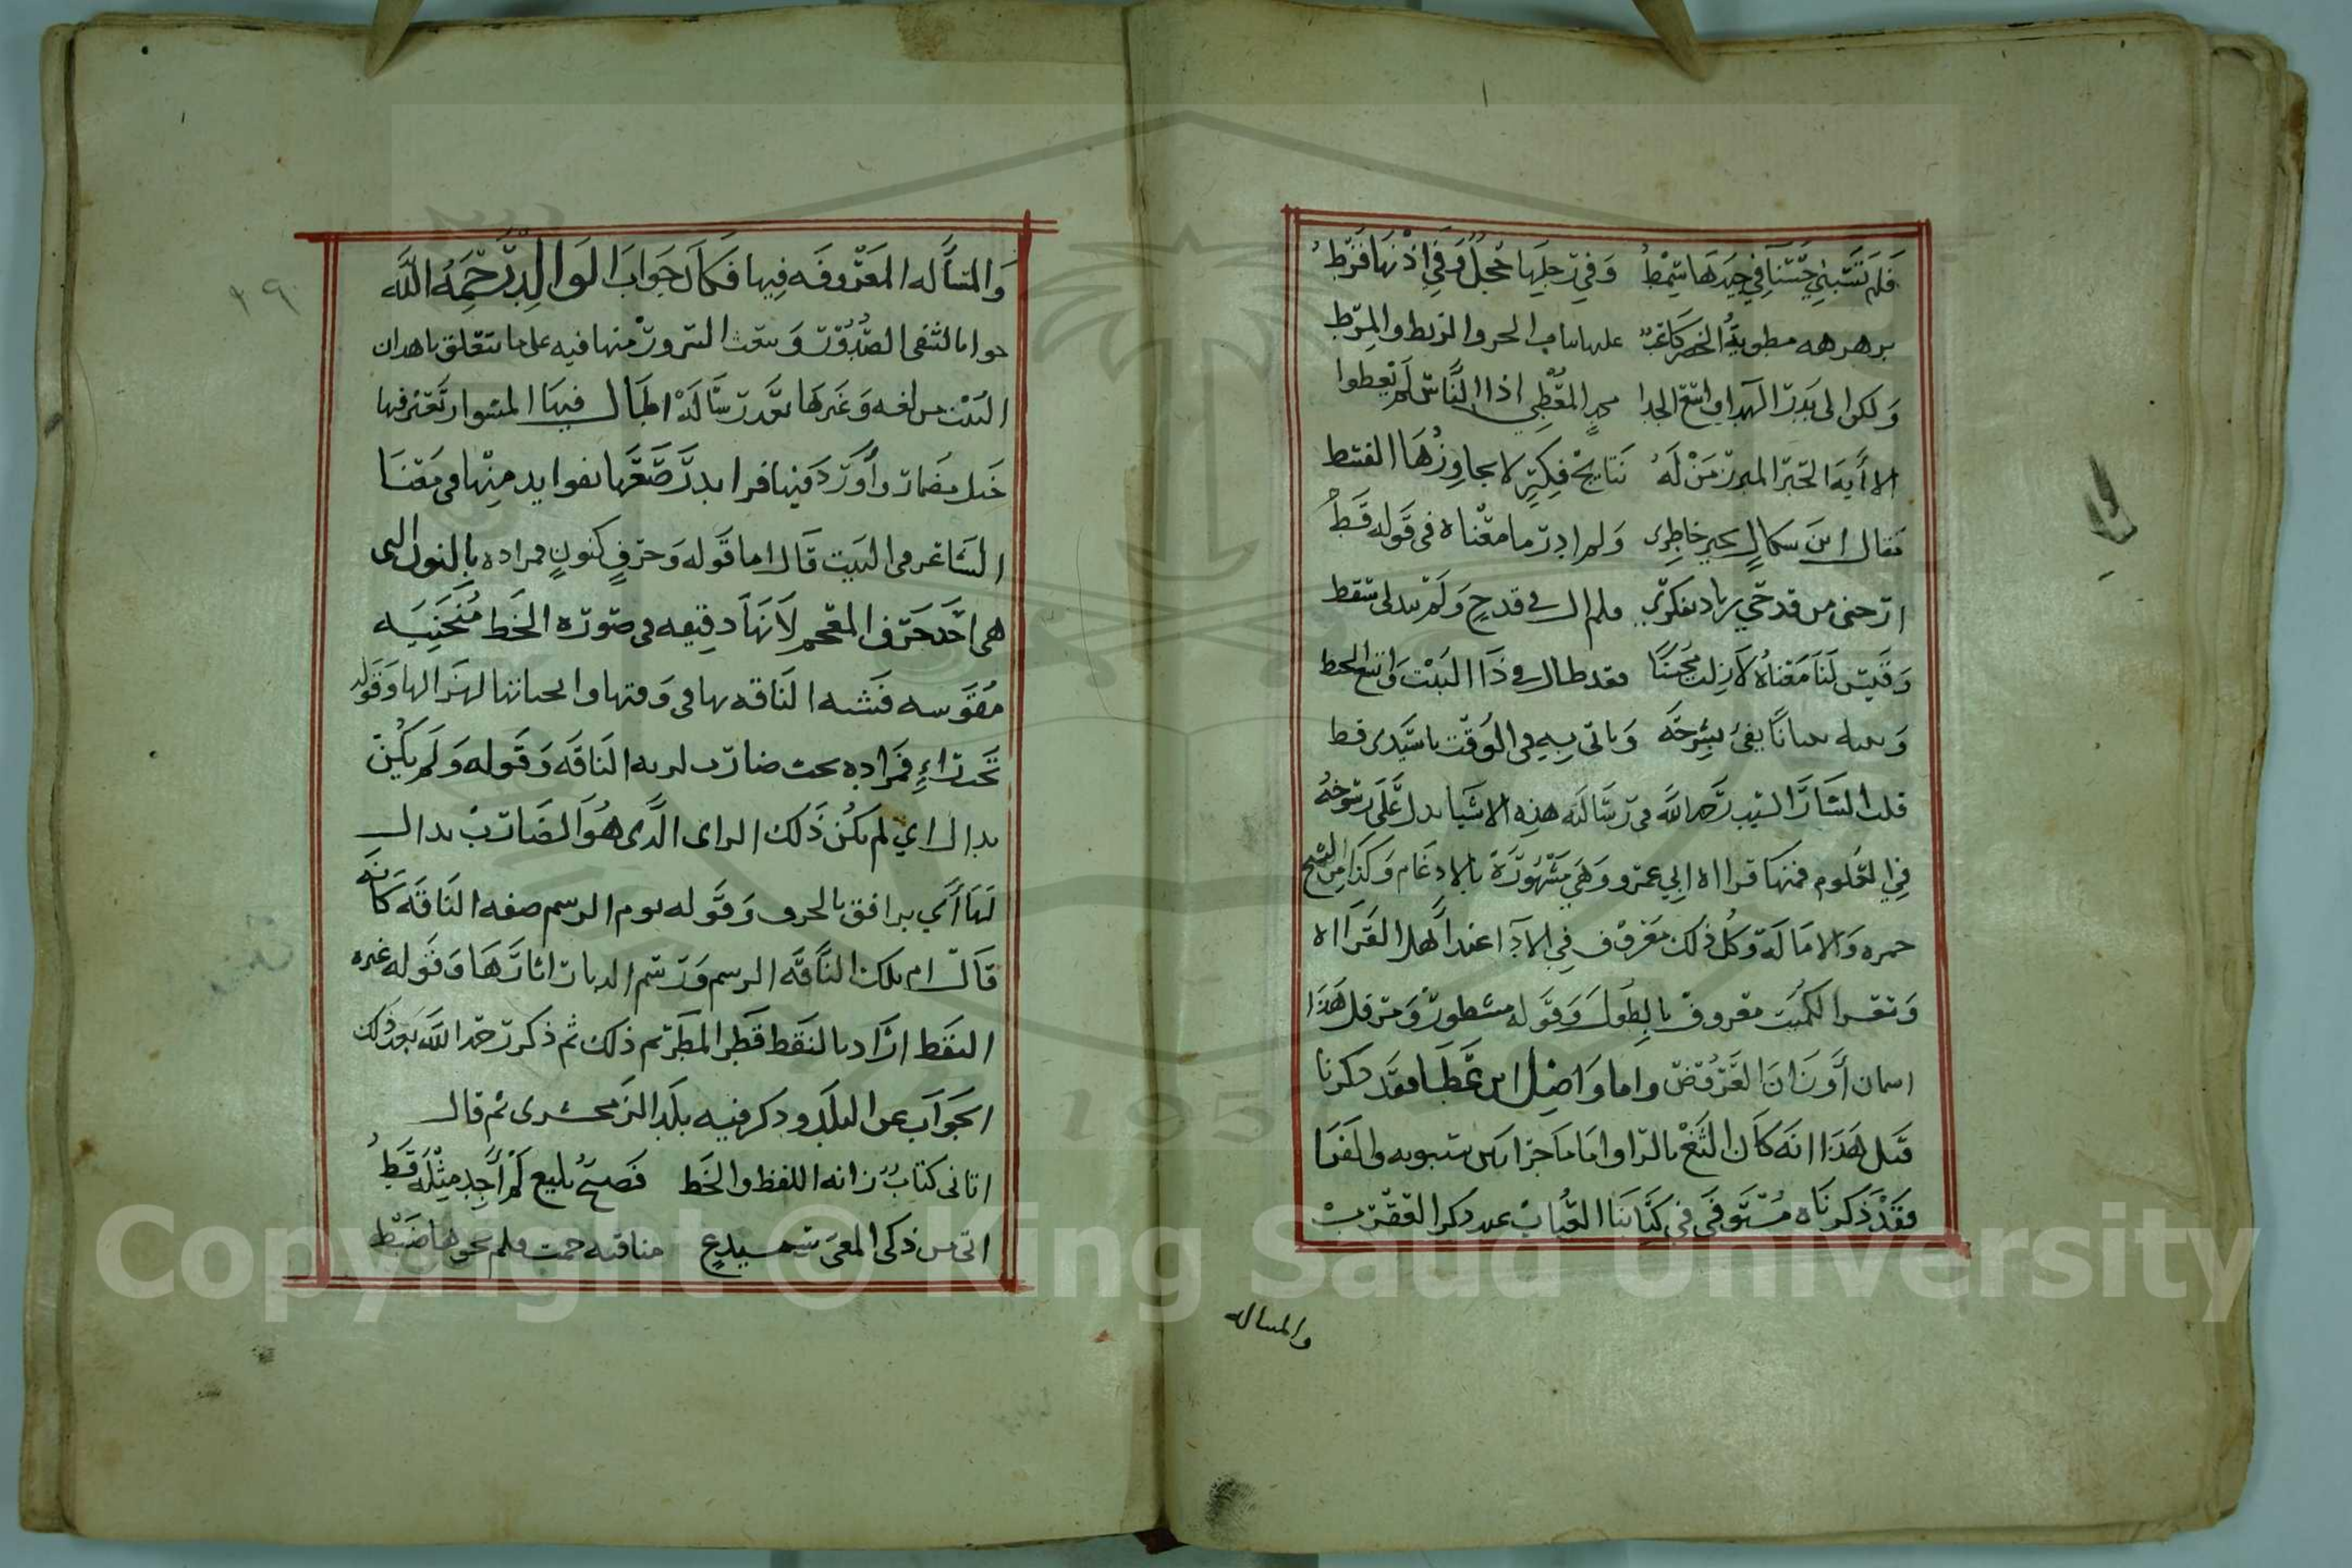 فلم تسبني حسنا في جيدها سمط وفي رجليها حجل وفي اذنها قرط
برهرهه مطوية الخصر كاعب عليها الحرو الربط والمرط
ولكن الى بدر الهدا واسع الجدا المعطي اذا الناس لم يعطوا
الا أيه الحبر المبرز من له نتايج فكر لا يجاوزها القسط
فقال ابن سكال خاطري ولم ادر ما معناه في قوله قط
ارحني من قدحي زناد بفكرتي فلم ال في قدح ولم سقط
وقيس لنا معناه لا زلت محسنا فقد طال في ذا البيت واتسع الخط
بيانا يفي بشرحه وياتي به في الوقت يا سيدي قط
قلت السيد رحمه الله في رسالته هذه الاشيا يدل على رسوخه
في العلوم فمنها قراااه ابي عمرو وهي مشهورة بالادغام وكذا من الشيخ
حمزه والامالة وكل ذلك معروف في الادا عند أهل القراااه
وتقعر الكميت معروف بالطول وقوله مشطور ومرفل هذا
اسمان أوزان العروض واما واصل ابن عطا فقد ذكرنا
قبل هذا انه كان الثغ بالرا واما ما جرا بين سيبويه والفرا
فقد ذكرناه مستوفى في كتابنا العباب عند ذكر العقرب
والمساله
والمسأله المعروفه فيها فكان جواب الوالد رحمه الله
جوابا شفى الصدور وبعث السرور منها فيه على ما يتعلق بهذا
البيت من لغه وغيرها بعد رسالة اطال فيها المشوار تعثر فيها
خيل مضمار وأورد فيها فرايد رصعها بفوايد منها في معنا
الشاعر في البيت قال اما قوله وحرف كنون فمراده بالنون التي
هي احد حرف المعجم لأنها دقيقه في صوره الخط منحنيه
مقوسه فشبه الناقه بها في دقتها وانحنائها لهزالها وقوله
تحت راء فمراده تحت ضارب لريه الناقه وقوله ولم يكن
بدال اي لم يكن ذلك الراى الذي هو الضارب بدال
لها أي برافق بالحرف وقوله يوم الرسم صفه الناقه كأنه
قال ام تلك الناقه الرسم ورسم الديار اثارها وقوله غيره
النقط اراد بالنقط قطر المطر تم ذلك ثم ذكر رحمه الله بعد ذلك
الجواب عن البلد وذكر فيه بلد الزمخشري ثم قال
اتاني كتاب زانه اللفظ والخط فصيح بليغ لم أجد مثله قط
اتى من ذكي المعي سميدع مناقبه جمت فلم يحوها ضبط
٢٩
Copyright © King Saud University
1957